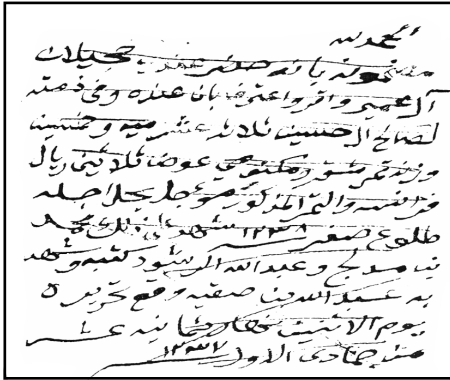 الحمد لله
مضمونه بانه حضر عندي حجيلان
آل حمير واقر واعترف بان عنده وفي ذمته
لصالح ال حسين ثلاثة عشر ميه وخمسين
وزنه تمر شقر ومكتومي عوض ثلاثين ريال
فرانسه والتمر المذكور مؤجل يحل اجله
طلوع صفر ١٢٣٨ شهد على ذلك محمد
بن مدلج وعبد الله الرشود كتبه وشهد
به عبد الله بن صقيه وقع تحريره
يوم الاثنين نهار ثمانية عشر
من جمادى الاول ١٢٣٧